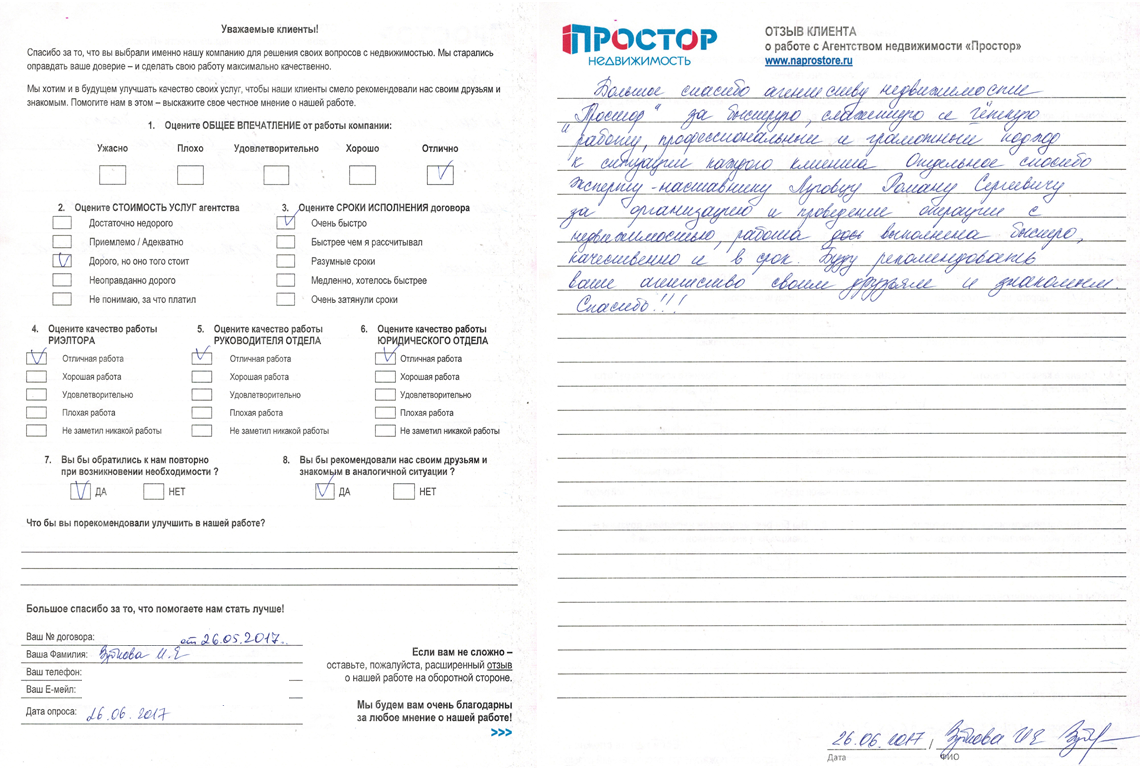 Уважаемые клиенты!
Спасибо за то, что вы выбрали именно нашу компанию для решения своих вопросов с недвижимостью. Мы старались
оправдать ваше доверие – и сделать свою работу максимально качественно.
Мы хотим и в будущем улучшать качество своих услуг, чтобы наши клиенты смело рекомендовали нас своим друзьям и
знакомым. Помогите нам в этом – выскажите свое честное мнение о нашей работе.
1. Оцените ОБЩЕЕ ВПЕЧАТЛЕНИЕ от работы компании:
Ужасно Плохо Удовлетворительно Хорошо Отлично
2. Оцените СТОИМОСТЬ УСЛУГ агентства
Достаточно недорого
Приемлемо / Адекватно
Дорого, но оно того стоит
Неоправданно дорого
Не понимаю, за что платил
3. Оцените СРОКИ ИСПОЛНЕНИЯ договора
Очень быстро
Быстрее чем я рассчитывал
Разумные сроки
Медленно, хотелось быстрее
Очень затянули сроки
4. Оцените качество работы
РИЭЛТОРА
Отличная работа
Хорошая работа
Удовлетворительно
Плохая работа
Не заметил никакой работы
5. Оцените качество работы
РУКОВОДИТЕЛЯ ОТДЕЛА
Отличная работа
Хорошая работа
Удовлетворительно
Плохая работа
Не заметил никакой работы
6. Оцените качество работы
ЮРИДИЧЕСКОГО ОТДЕЛА
Отличная работа
Хорошая работа
Удовлетворительно
Плохая работа
Не заметил никакой работы
7. Вы бы обратились к нам повторно
при возникновении необходимости ?
ДА НЕТ
8. Вы бы рекомендовали нас своим друзьям и
знакомым в аналогичной ситуации ?
ДА НЕТ
Что бы вы порекомендовали улучшить в нашей работе?
Большое спасибо за то, что помогаете нам стать лучше!
Ваш № договора: от 26.05.2017.
Ваша Фамилия: И.Е
Ваш телефон:
Ваш E-мейл:
Дата опроса: 26.06.2017
Если вам не сложно –
оставьте, пожалуйста, расширенный отзыв
о нашей работе на оборотной стороне.
Мы будем вам очень благодарны
за любое мнение о нашей работе!
>>>
ПРОСТОР
НЕДВИЖИМОСТЬ
ОТЗЫВ КЛИЕНТА
о работе с Агентством недвижимости «Простор»
www.naprostore.ru
Большое спасибо агентству недвижимости
"Простор" за быструю, слаженную и чёткую
работу, профессиональный и грамотный подход
к ситуации каждого клиента Отдельное спасибо
эксперту-наставнику Луговцу Роману Сергеевичу
за организацию и проведение операции с
недвижимостью, работа выполнена быстро,
качественно и в срок. Буду рекомендовать
ваше агентство своим друзьям и знакомым.
Спасибо!!!
26.06.2017, И.Е
Дата ФИО